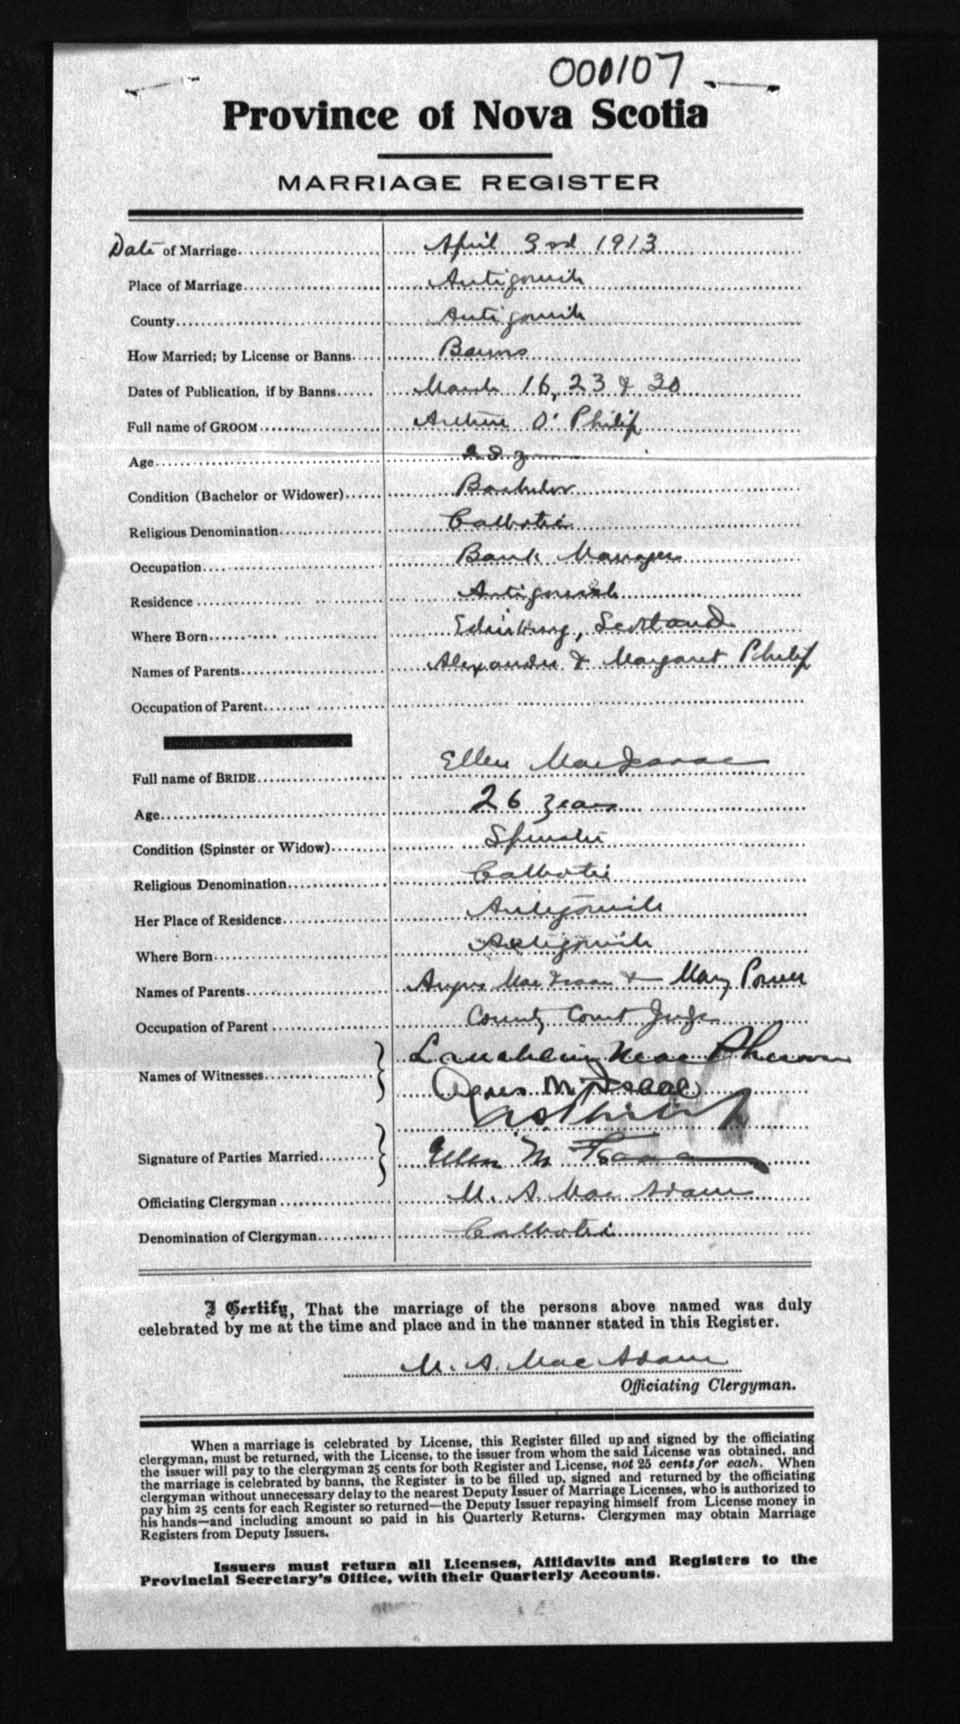 000107
Province of Nova Scotia
MARRIAGE REGISTER
Date of Marriage April 3rd 1913
Place of Marriage Antigonish
County Antigonish
How Married; by License or Banns Banns
Dates of Publication, if by Banns March 16, 23 & 30
Full name of GROOM Arthur O' Philip
Age
Condition (Bachelor or Widower) Bachelor
Religious Denomination Catholic
Occupation Bank Manager
Residence Antigonish
Where Born Edinburg, Scotland
Names of Parents Alexander & Margaret Philip
Occupation of Parent
Full name of BRIDE Ellen MacIsaac
Age 26 years
Condition (Spinster or Widow) Spinster
Religious Denomination Catholic
Her Place of Residence Antigonish
Where Born Antigonish
Names of Parents Angus MacIsaac & Mary Power
Occupation of Parent County Court Judge
Names of Witnesses
Agnes McIsaac
Signature of Parties Married Ellen McIsaac
Officiating Clergyman M. A. MacAdam
Denomination of Clergyman Catholic
I Certify, That the marriage of the persons above named was duly
celebrated by me at the time and place and in the manner stated in this Register.
M. A. MacAdam
Officiating Clergyman.
When a marriage is celebrated by License, this Register filled up and signed by the officiating
clergyman, must be returned, with the License, to the issuer from whom the said License was obtained, and
the issuer will pay to the clergyman 25 cents for both Register and License, not 25 cents for each. When
the marriage is celebrated by banns, the Register is to be filled up, signed and returned by the officiating
clergyman without unnecessary delay to the nearest Deputy Issuer of Marriage Licenses, who is authorized to
pay him 25 cents for each Register so returned—the Deputy Issuer repaying himself from License money in
his hands—and including amount so paid in his Quarterly Returns. Clergymen may obtain Marriage
Registers from Deputy Issuers.
Issuers must return all Licenses, Affidavits and Registers to the
Provincial Secretary's Office, with their Quarterly Accounts.